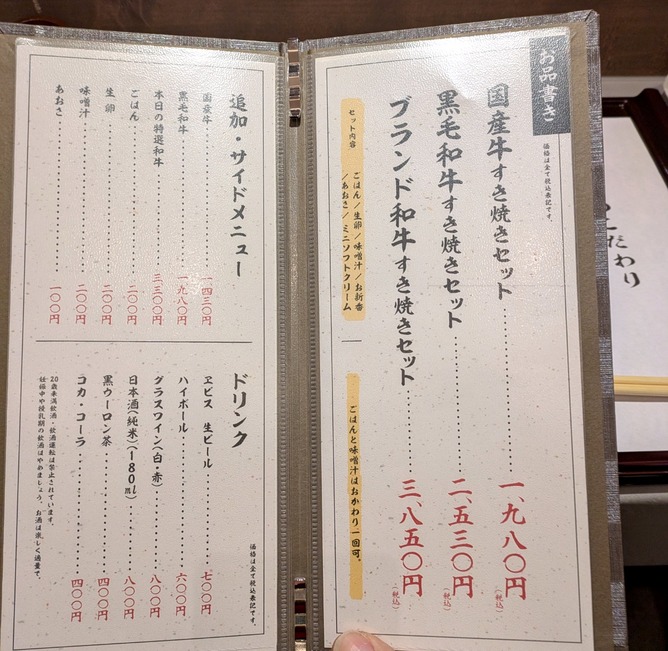 お品書き
価格は全て税込表記です。
国産牛すき焼きセット 一、九八〇円(税込)
黒毛和牛すき焼きセット 二、五三〇円(税込)
ブランド和牛すき焼きセット 三、八五〇円(税込)
セット内容
ごはん/生卵/味噌汁/お新香
/あおさ/ミニソフトクリーム
ごはんと味噌汁はおかわり一回可。
追加・サイドメニュー
国産牛 一、四三〇円
黒毛和牛 一、九八〇円
本日の特選和牛 三、三〇〇円
ごはん 二〇〇円
生卵 二〇〇円
味噌汁 二〇〇円
あおさ 一〇〇円
ドリンク
価格は全て税込表記です。
ヱビス 生ビール 七〇〇円
ハイボール 六〇〇円
グラスワイン(白・赤) 八〇〇円
日本酒(純米)(180㎖) 八〇〇円
黒ウーロン茶 四〇〇円
コカ・コーラ 四〇〇円
20歳未満飲酒・飲酒運転は禁止されています。
妊娠中や授乳期の飲酒はやめましょう。お酒は楽しく適量で。
こだわり